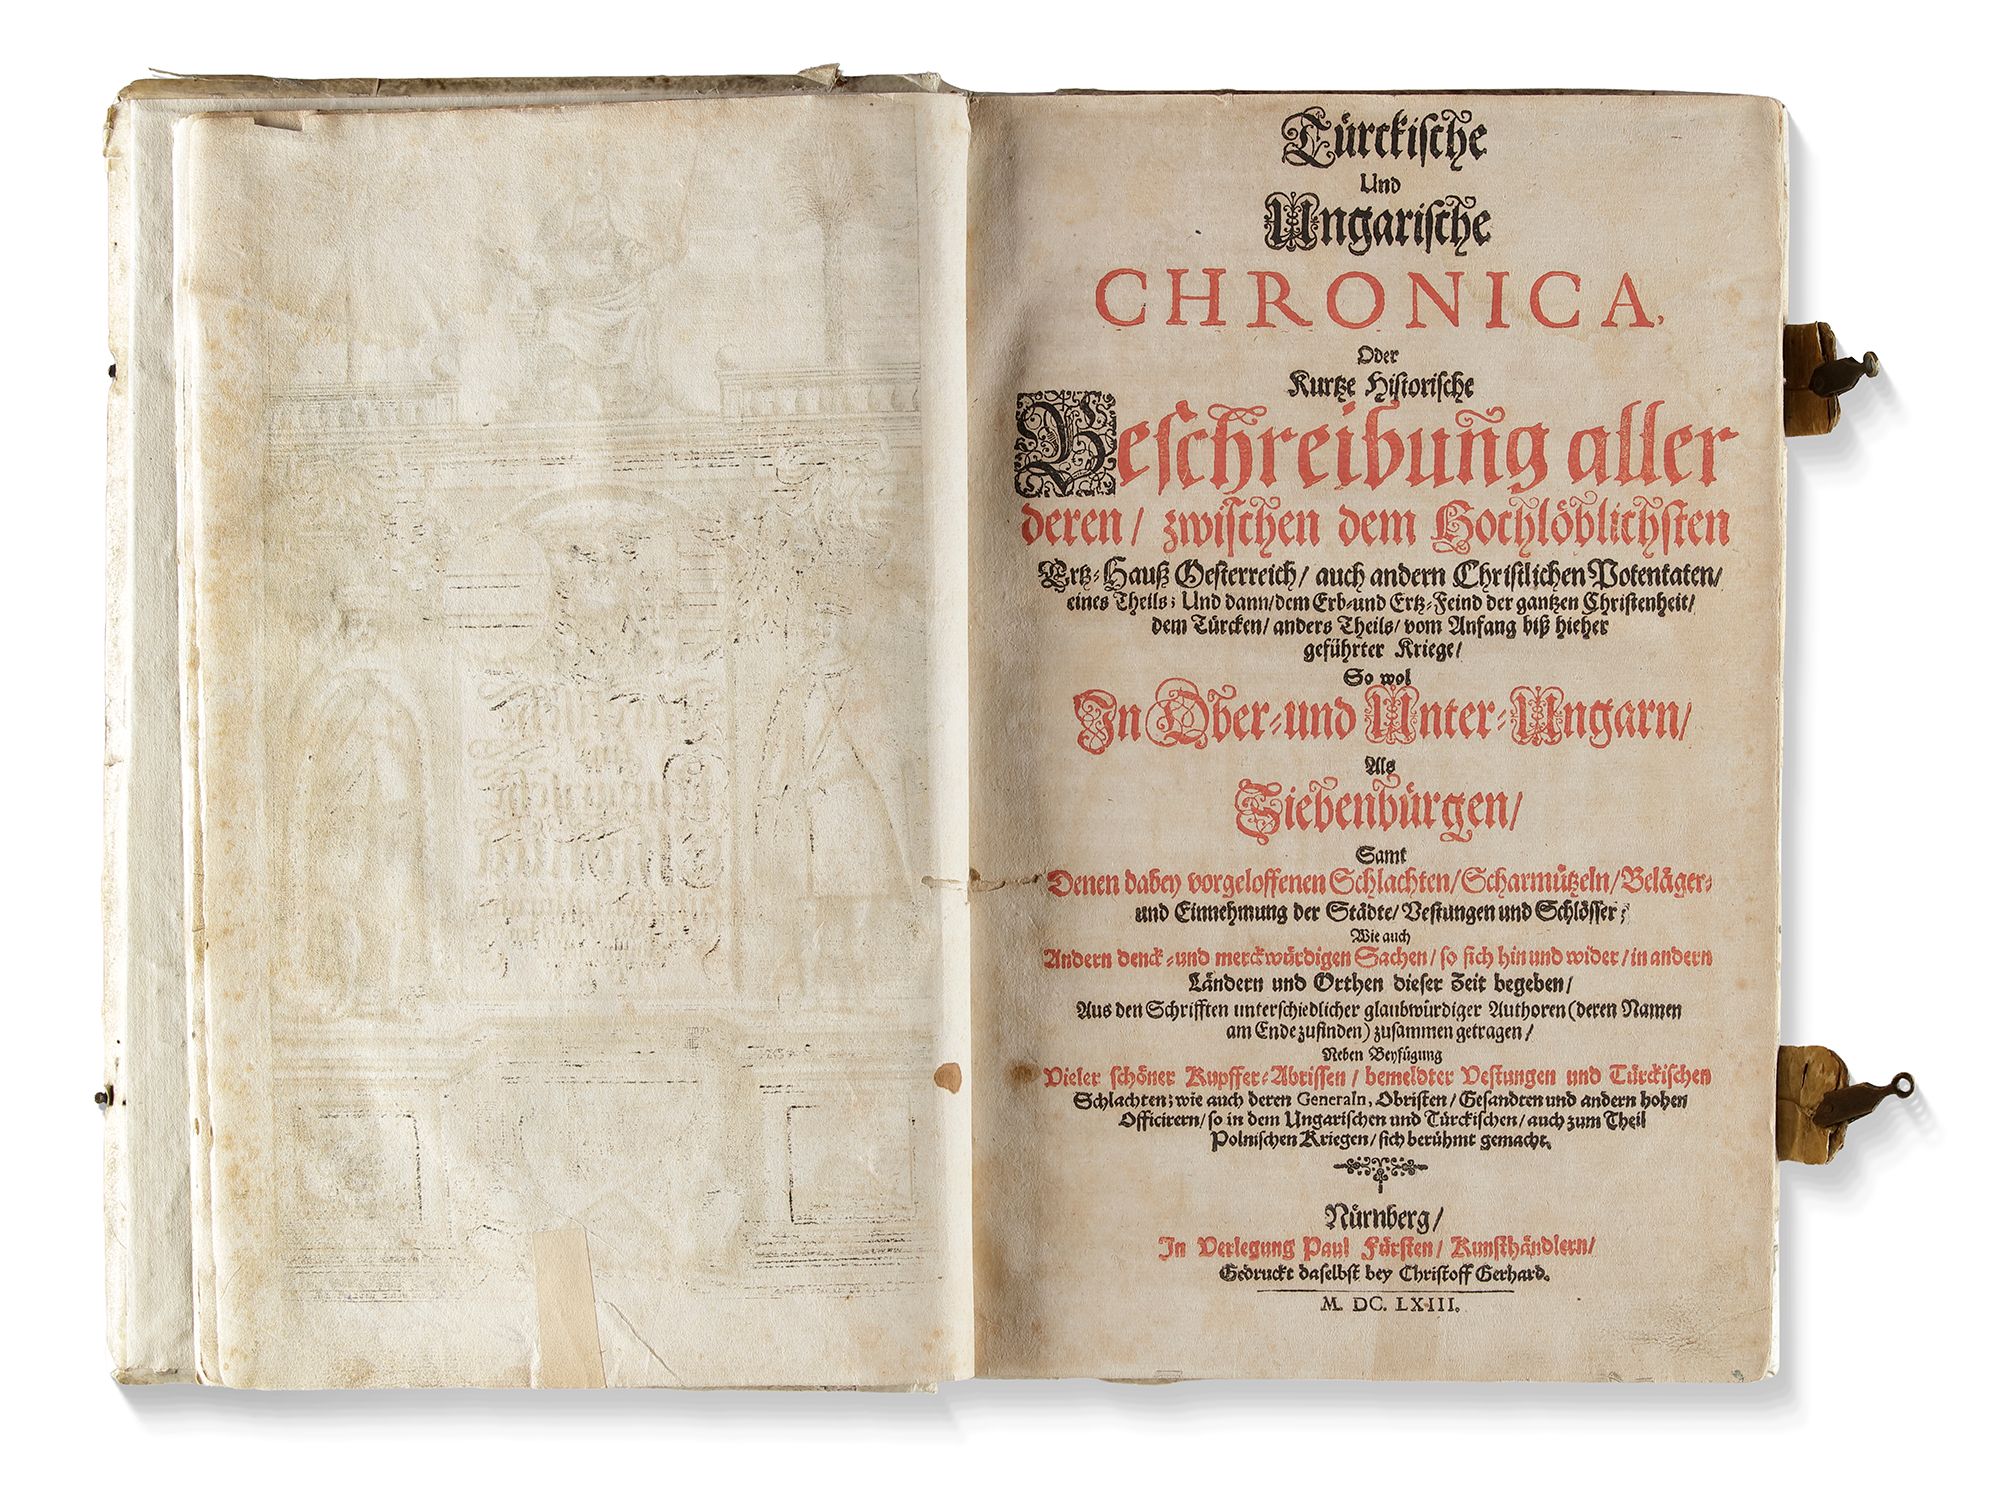 Türckische
Und
Ungarische
CHRONICA,
Oder
Kurtze Historische
Beschreibung aller
deren/ zwischen dem Hochlöblichsten
Ertz-Hauß Oesterreich/ auch andern Christlichen Potentaten/
eines Theils; Und dann/dem Erb-und Ertz-Feind der gantzen Christenheit/
dem Türcken/ anders Theils/ vom Anfang biß hieher
geführter Kriege/
So wol
In Ober-und Unter-Ungarn/
Als
Siebenbürgen/
Samt
Denen dabey vorgeloffenen Schlachten/Scharmützeln/Beläger-
und Einnehmung der Städte/Vestungen und Schlösser;
Wie auch
Andern denck-und merckwürdigen Sachen/ so sich hin und wider/in andern
Ländern und Orthen dieser Zeit begeben/
Aus den Schrifften unterschiedlicher glaubwürdiger Authoren (deren Namen
am Ende zufinden) zusammen getragen/
Neben Beyfügung
Vieler schöner Kupffer-Abrissen/ bemeldter Vestungen und Türckischen
Schlachten; wie auch deren Generaln, Obristen/ Gesandten und andern hohen
Officirern/so in dem Ungarischen und Türckischen/auch zum Theil
Polnischen Kriegen/sich berühmt gemacht.
Nürnberg/
In Verlegung Paul Fürsten/ Kunsthändlern/
Gedruckt daselbst bey Christoff Gerhard.
M. DC. LXIII.